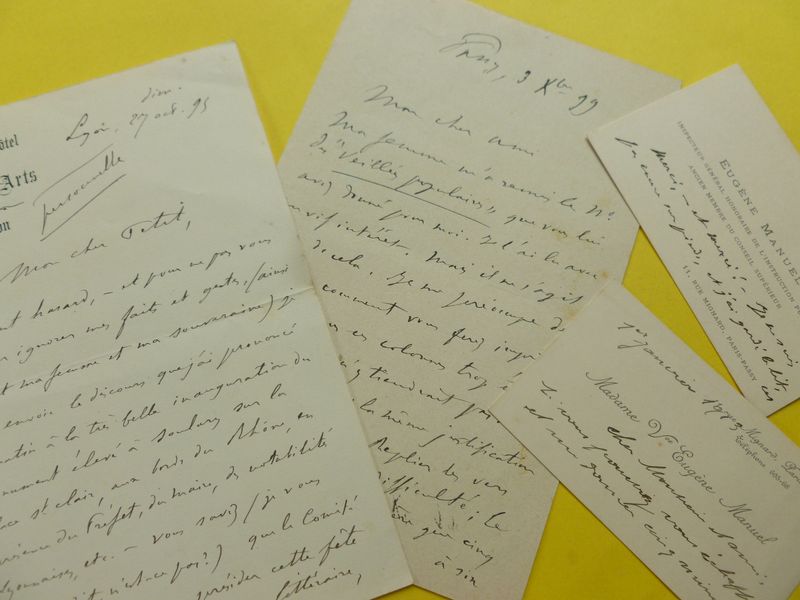 ôtel
Arts
on
dim.
Lyon, 27 oct. 95
personnelle
Mon cher Petit,
hasard, – et pour ne pas vous
ignorer mes faits et gestes, (ainsi
et ma femme et ma souveraine) je
envoie le discours que j'ai prononcé
matin à la très belle inauguration du
monument élevé à Soulary sur la
place St Clair, aux bords du Rhône, en
présence du Préfet, du maire, des notabilités
lyonnaises, etc. – vous savez (je vous
dit, n'est-ce pas?) que le Comité
présider cette fête
littéraire,
Passy, 3 Xbre 99
Mon cher ami
Ma femme m'a remis le No
des "Veillées populaires", que vous lui
avez donné pour moi. Je l'ai lu avec
un vif intérêt. Mais il s'agit
de cela. Je me préoccupe de
comment vous ferez
colonnes trop
tiendront pas
la même justification
Replier les vers
difficulté; le
que cinq
à six
EUGÈNE MANUEL
INSPECTEUR GÉNÉRAL HONORAIRE DE L'INSTRUCTION P
ANCIEN MEMBRE DU CONSEIL SUPÉRIEUR
11, RUE MIGNARD, PARIS-PASSY
Merci, – et merci! – Je suis
et j'ai gardé le lit,
1er janvier 1903
Mignard, Paris
Téléphone
Madame Vve Eugène Manuel
cher Monsieur et ami,
Si vous pouvez vous échapper
cinq